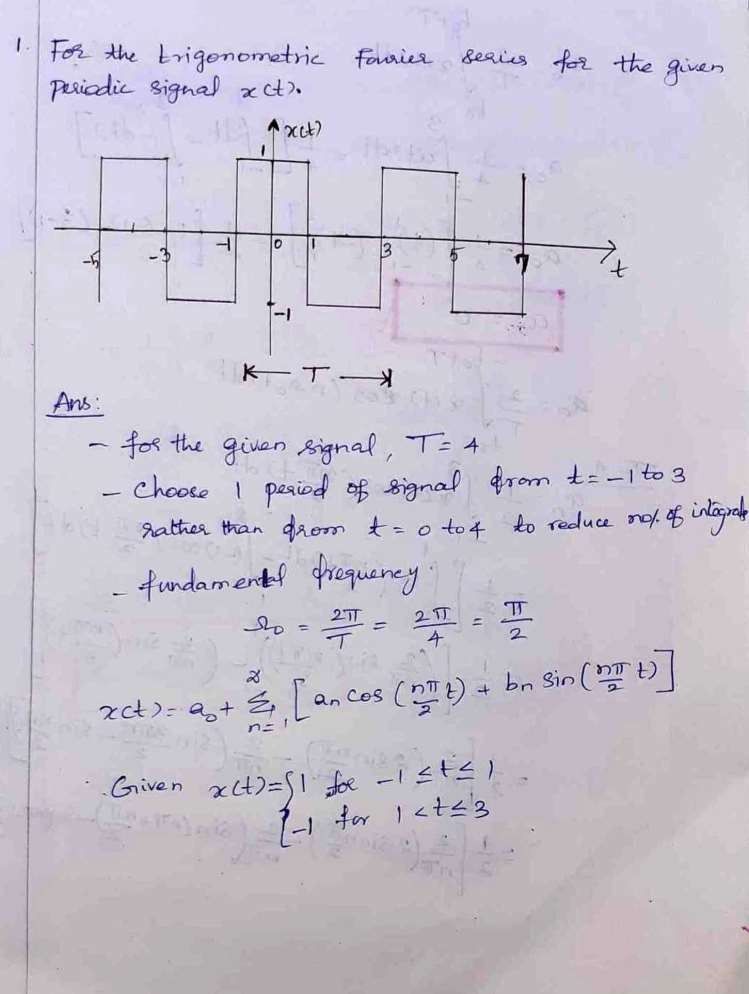 1. For the trigonometric Fourier series for the given
periodic signal x(t).
x(t)
1
-5 -3 -1 0 1 3 5 7 t
-1
T
Ans:
- for the given signal, T = 4
- Choose 1 period of signal from t = -1 to 3
rather than from t = 0 to 4 to reduce no/. of integrals
- fundamental frequency
Ω₀ = 2π/T = 2π/4 = π/2
x(t) = a₀ + ∑ₙ₌₁^∞ [an cos (nπ/2 t) + bn sin (nπ/2 t)]
Given x(t) = { 1 for -1 ≤ t ≤ 1
{ -1 for 1 < t ≤ 3